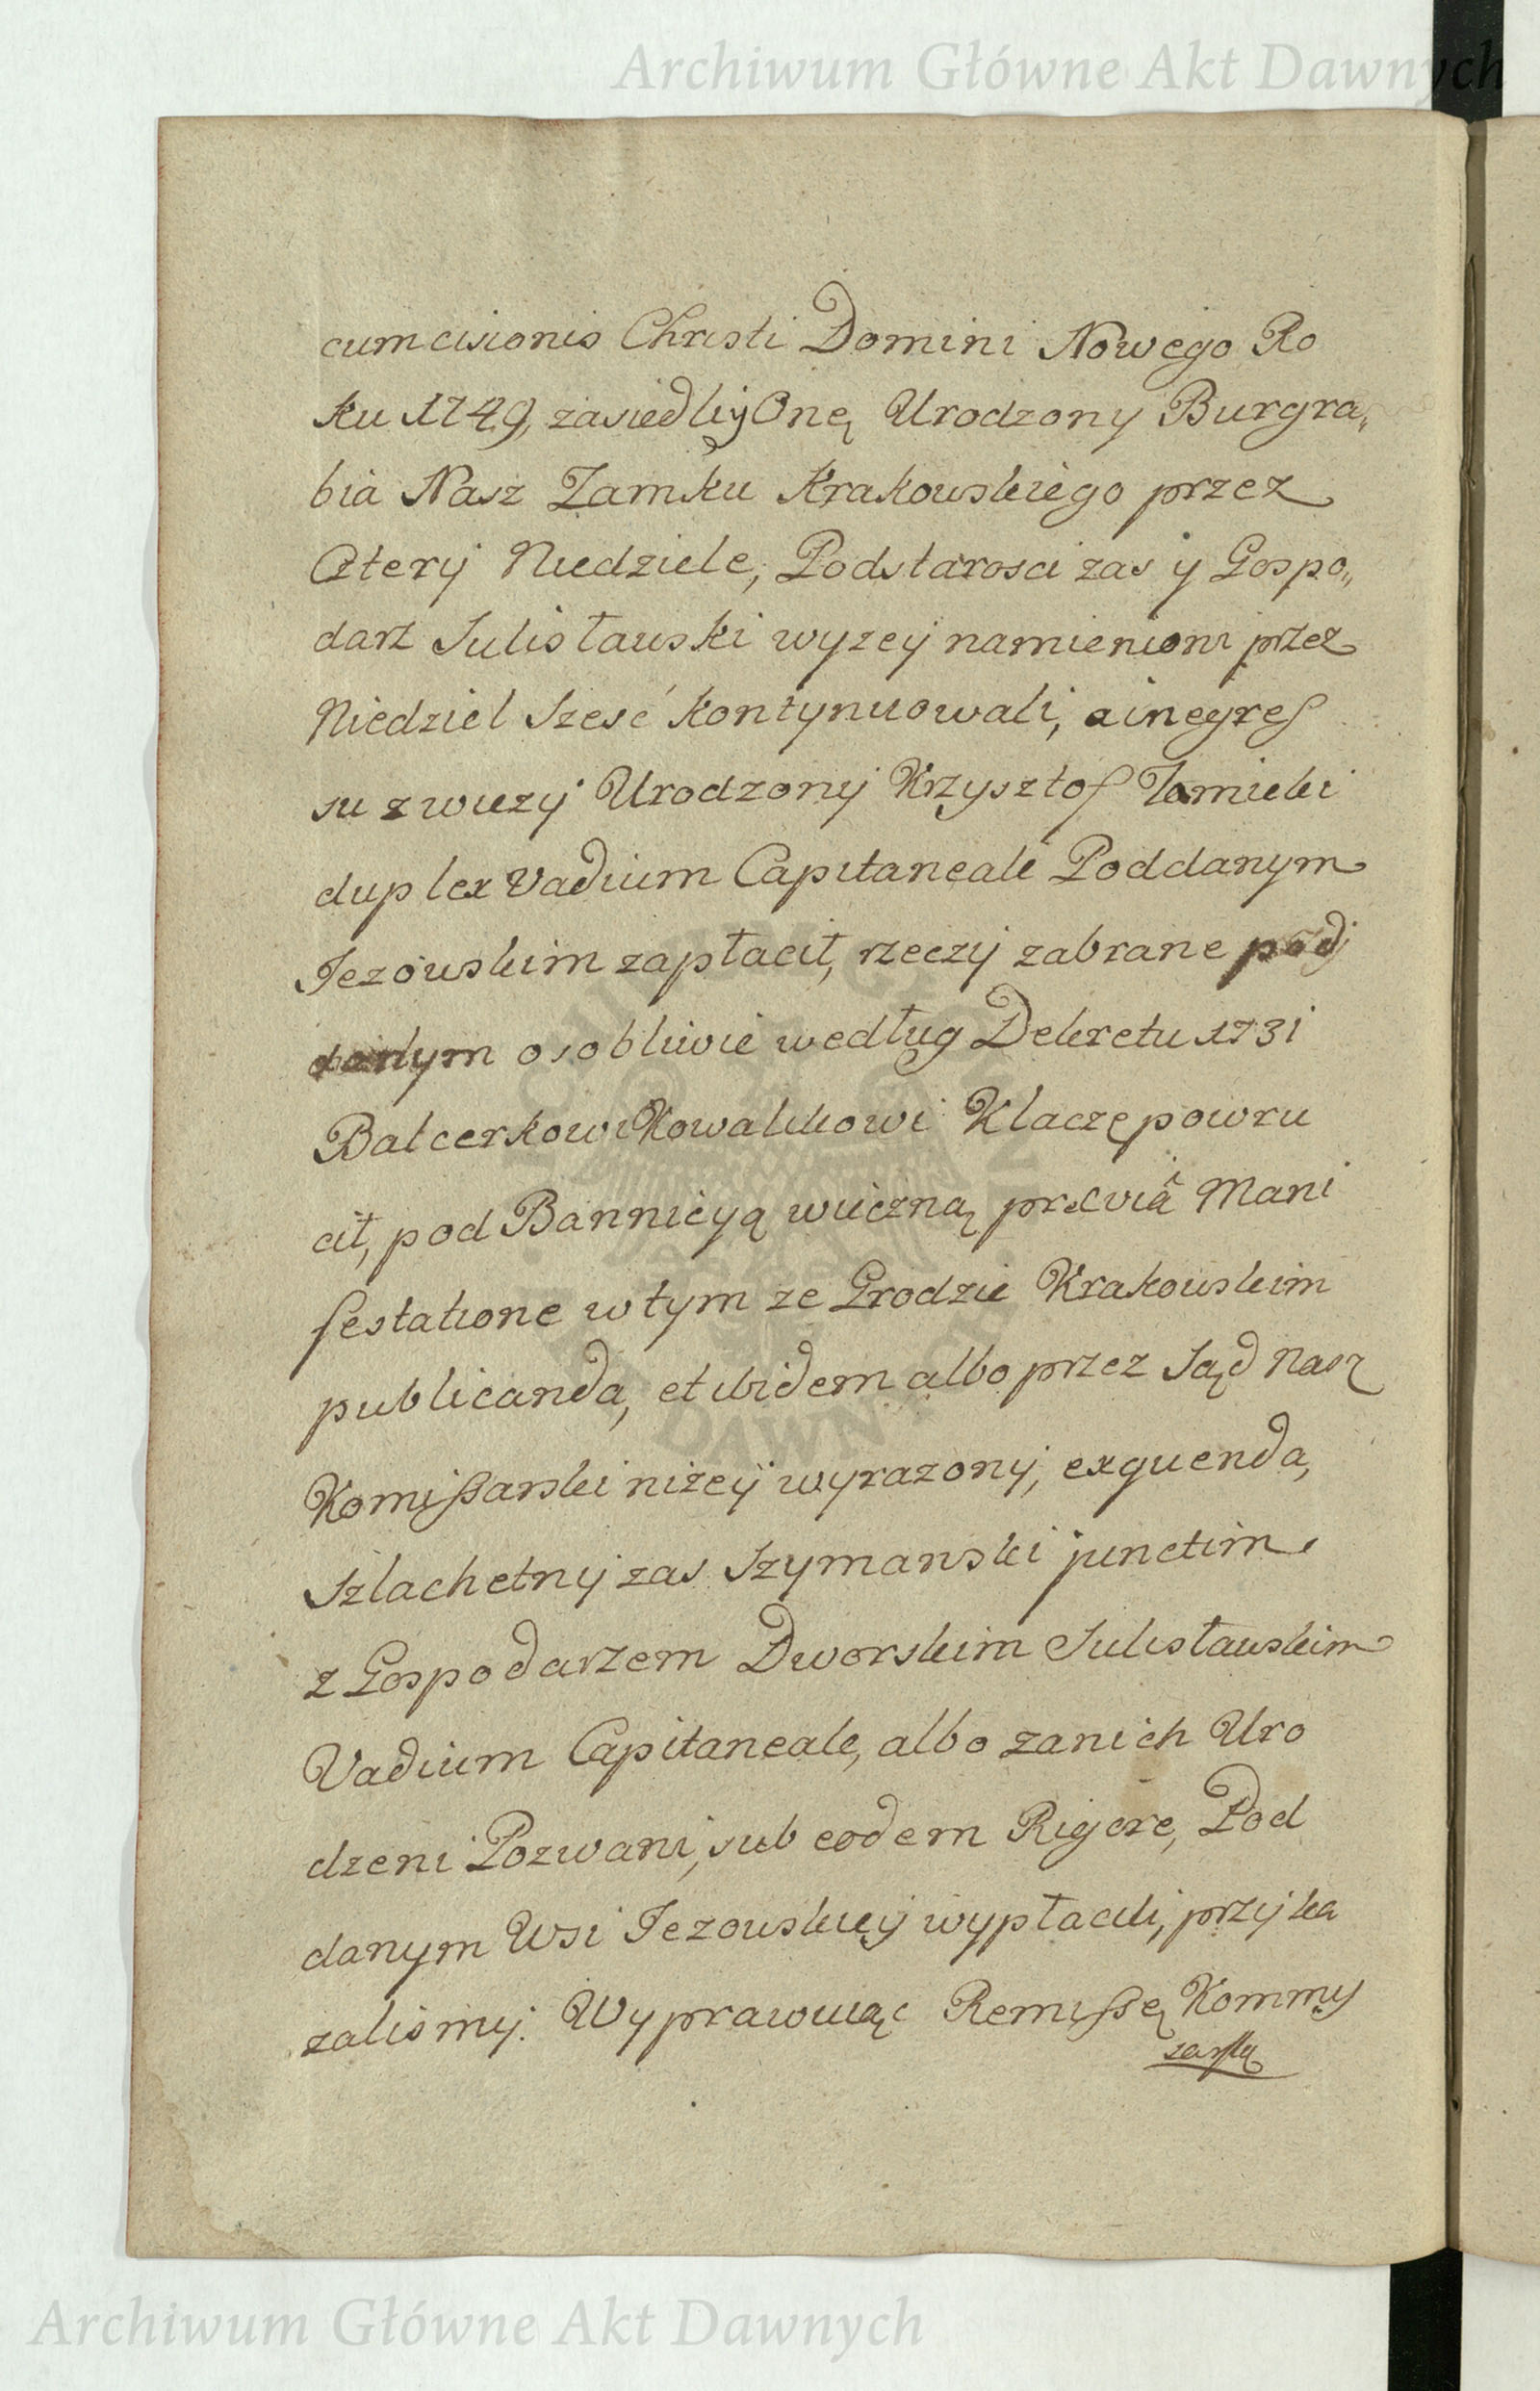 Archiwum Główne Akt Dawnych
cumcisionis Christi Domini Nowego Ro
ku 1749, zasiedli y Onę Urodzony Burgra„
bia Nasz Zamku Krakowskiego przez
Cztery Niedziele, Podstarosci zas y Gospo„
darz Sulisławski wyzey namienioni przez
Niedziel Szesć kontynuowali, a in egres
su z wiezy Urodzony Krzysztof
duplex Vadium Capitaneale Poddanym
Jezowskim zapłacił, rzeczy zabrane podj
danym osobliwie według Dekretu 1731
Balcerkowi Kowalikowi Klaczę powru
cił, pod Bannicyą wieczną prævia Mani
festatione w tym ze Grodzie Krakowskim
publicanda, et ibidem albo przez Sąd Nasz
Komissarski niżey wyrazony, exquenda,
Szlachetny zas Szymanski junctim
z Gospodarzem Dworskim Sulisławskim
Vadium Capitaneale, albo za nich Uro
dzeni Pozwani, sub eodem Rigore, Pod
danym Wsi Jezowskiey wypłacili, przyka
zaliśmy. Wyprawuiąc Remissę Kommys
sarską
Archiwum Główne Akt Dawnych